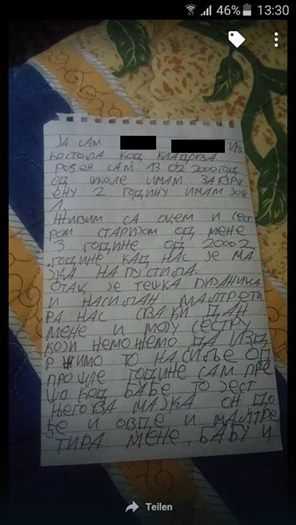 46% 13:30
ЈА САМ ИЗ
КОСТОЛА КОД КЛАДОВА
РОЂЕН САМ 13 02 2000 ГОД
ОД ШКОЛЕ ИМАМ ЗАВРШ
ЕНУ 2 ГОДИНУ ИМАМ ЈОШ
1.
ЖИВИМ СА ОЦЕМ И СЕСТ
РОМ СТАРИЈОМ ОД МЕНЕ
3 ГОДИНЕ ОД 2002
ГОДИНЕ КАД НАС ЈЕ МА
ЈКА НАПУСТИЛА.
ОТАЦ ЈЕ ТЕШКА ПИЈАНИЦА
И НАСИЛАН МАЛТРЕТИ
РА НАС СВАКИ ДАН
МЕНЕ И МОЈУ СЕСТРУ
КОЈИ НЕМОЖЕМО ДА ИЗД
РЖИМО ТО НАСИЉЕ ОД
ПРОШЛЕ ГОДИНЕ САМ ПРЕ
ШО КОД БАБЕ ТО ЈЕСТ
ЊЕГОВА МАЈКА ОН ДО
ЂЕ И ОВДЕ И МАЛТРЕ
ТИРА МЕНЕ, БАБУ И
Teilen